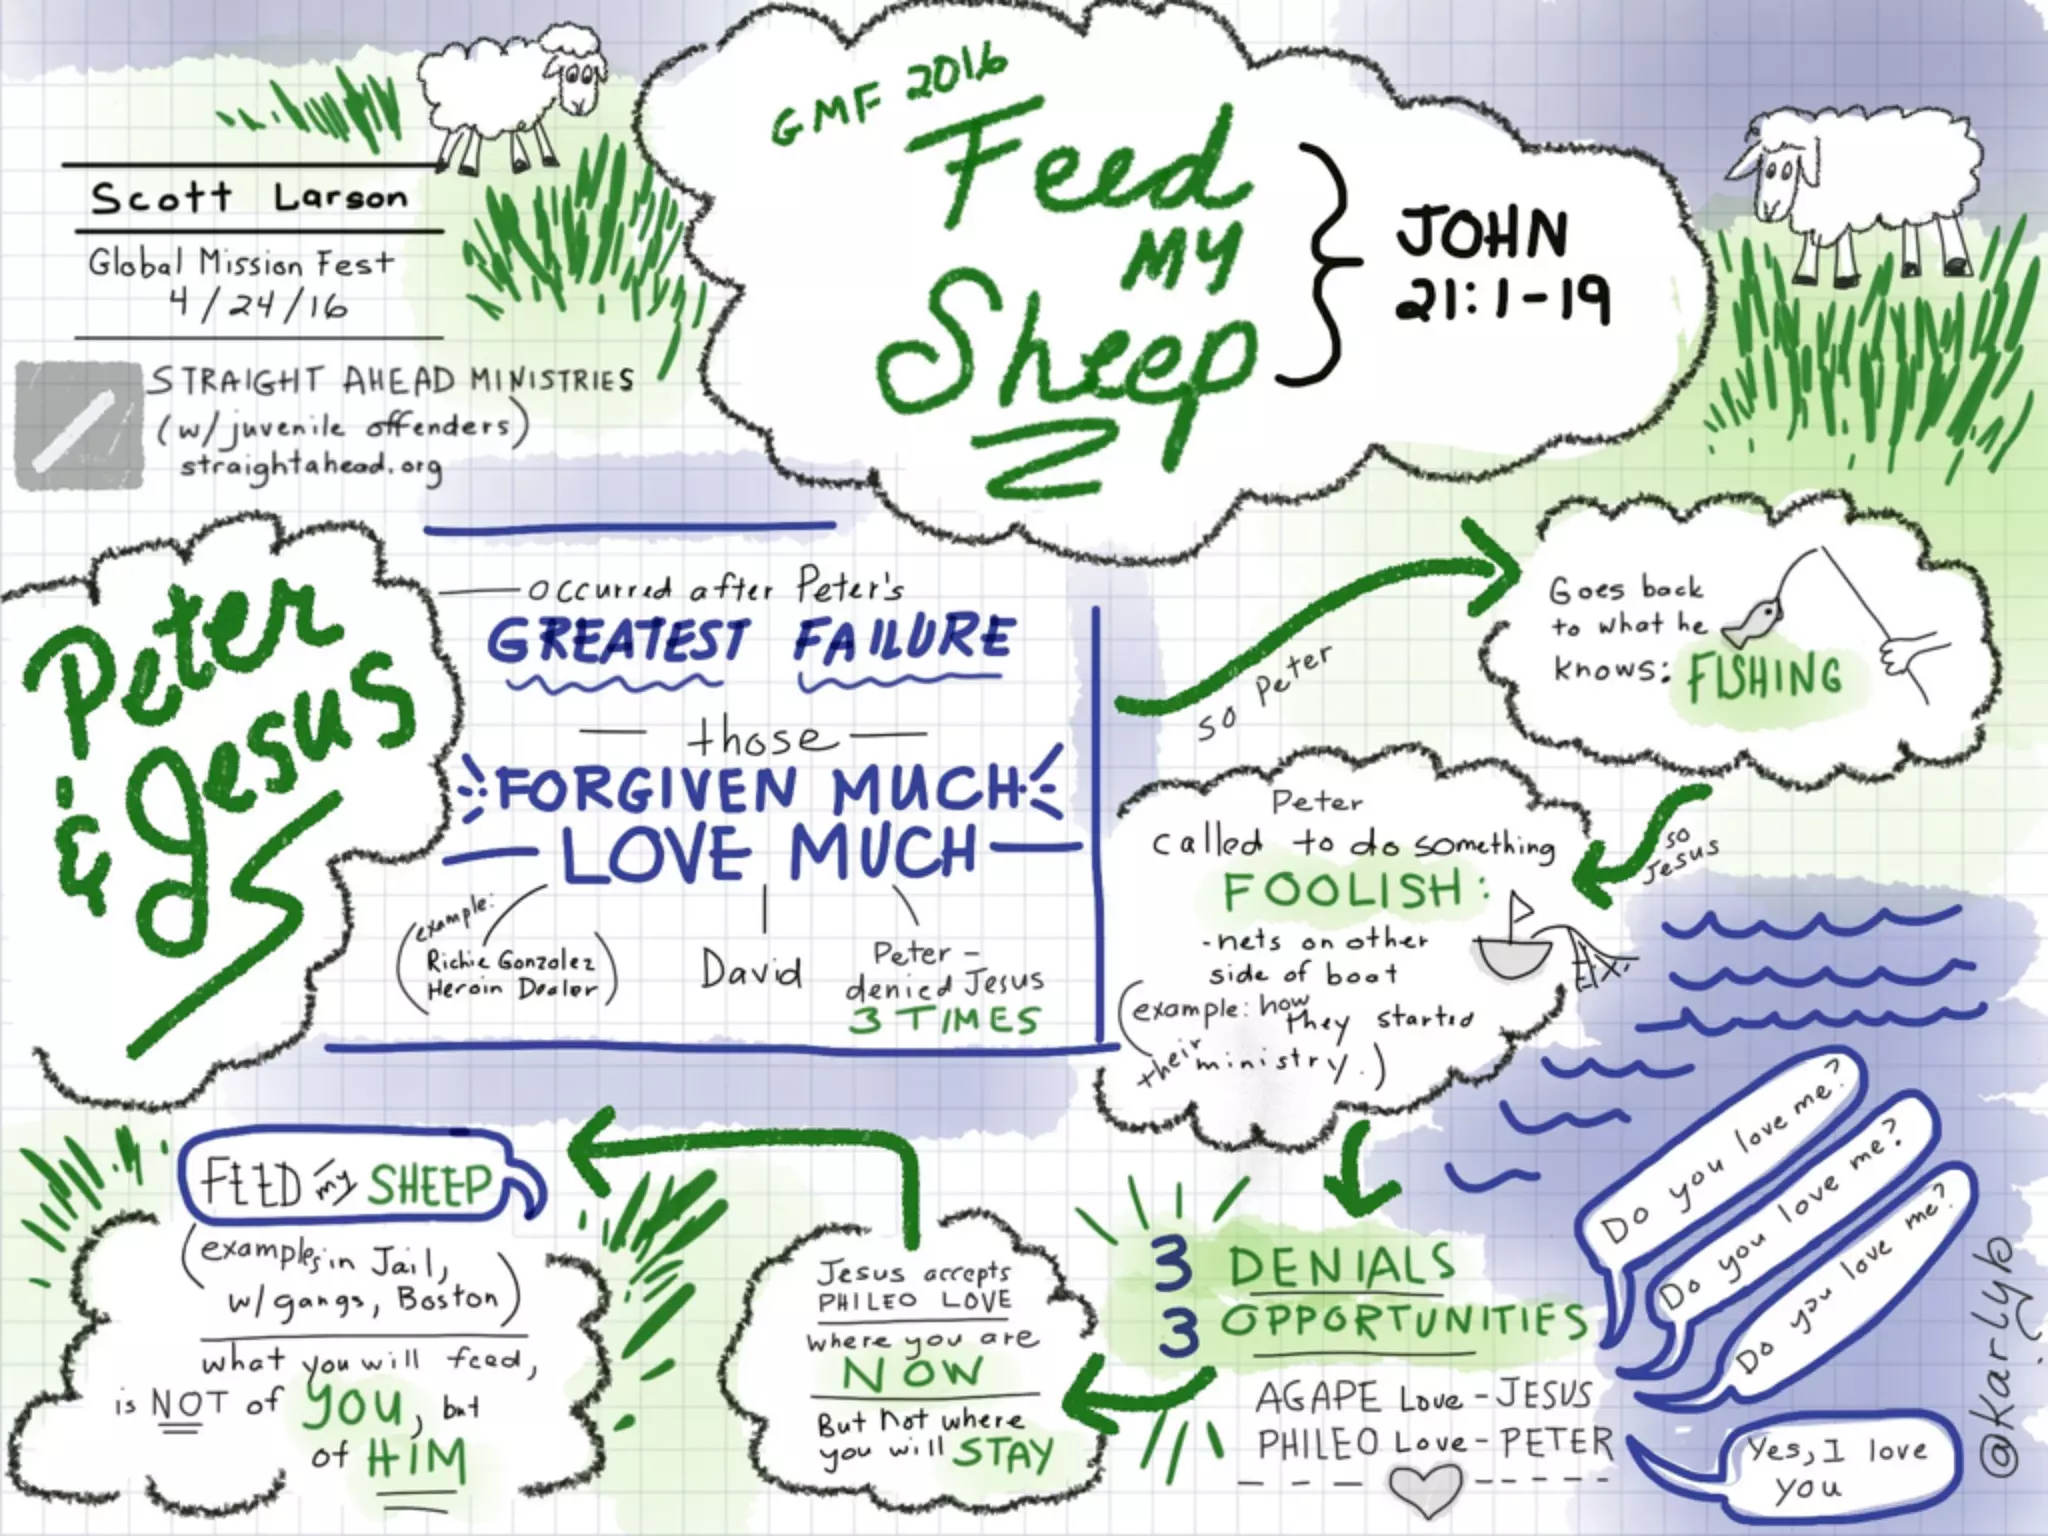 GMF 2016
Feed
MY
Sheep
JOHN
21:1-19
Scott Larson
Global Mission Fest
4/24/16
STRAIGHT AHEAD MINISTRIES
(w/ juvenile offenders)
straightahead.org
Peter
& Jesus
occurred after Peter's
GREATEST FAILURE
those
FORGIVEN MUCH
LOVE MUCH
(example:
Richie Gonzalez
Heroin Dealer)
David
Peter -
denied Jesus
3 TIMES
so Peter
Goes back
to what he
knows: FISHING
so
Jesus
Peter
called to do something
FOOLISH:
-nets on other
side of boat
(example: how
they started
their ministry.)
3 DENIALS
3 OPPORTUNITIES
AGAPE Love - JESUS
PHILEO Love - PETER
Do you love me?
Do you love me?
Do you love me?
Yes, I love
you
Jesus accepts
PHILEO LOVE
where you are
NOW
But not where
you will STAY
FEED my SHEEP
(examples in Jail,
w/ gangs, Boston)
what you will feed,
is NOT of YOU, but
of HIM
@karlyb